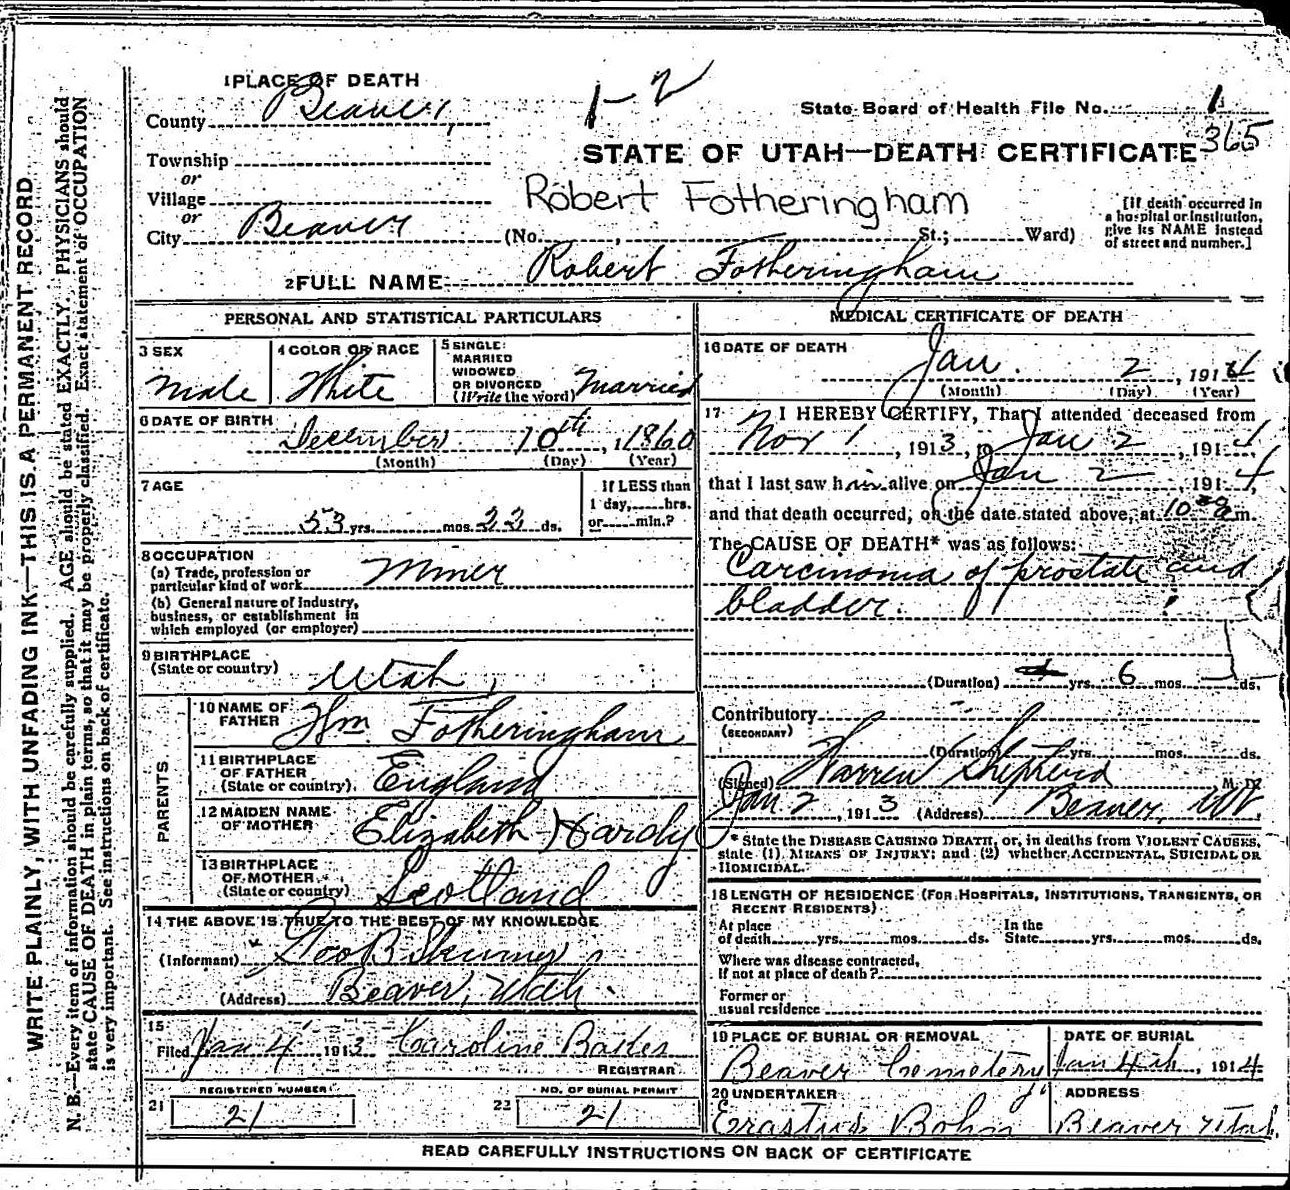 1 PLACE OF DEATH
County Beaver,
Township
or
Village
or
City Beaver
1-2
State Board of Health File No. 1
365
STATE OF UTAH—DEATH CERTIFICATE
Robert Fotheringham
(No. , St.; Ward)
[If death occurred in
a hospital or institution,
give its NAME instead
of street and number.]
2 FULL NAME Robert Fotheringham
WRITE PLAINLY, WITH UNFADING INK—THIS IS A PERMANENT RECORD
N. B.—Every item of information should be carefully supplied. AGE should be stated EXACTLY. PHYSICIANS should
state CAUSE OF DEATH in plain terms, so that it may be properly classified. Exact statement of OCCUPATION
is very important. See instructions on back of certificate.
PERSONAL AND STATISTICAL PARTICULARS
3 SEX
Male
4 COLOR OR RACE
White
5 SINGLE:
MARRIED
WIDOWED
OR DIVORCED
(Write the word) Married
6 DATE OF BIRTH
December 10th, 1860
(Month) (Day) (Year)
7 AGE
53 yrs. mos. 22 ds.
If LESS than
1 day, hrs.
or min.?
8 OCCUPATION
(a) Trade, profession or
particular kind of work Miner
(b) General nature of Industry,
business, or establishment in
which employed (or employer)
9 BIRTHPLACE
(State or country) Utah,
PARENTS
10 NAME OF
FATHER Wm. Fotheringham
11 BIRTHPLACE
OF FATHER
(State or country) England
12 MAIDEN NAME
OF MOTHER Elizabeth Hardy
13 BIRTHPLACE
OF MOTHER
(State or country) Scotland
14 THE ABOVE IS TRUE TO THE BEST OF MY KNOWLEDGE
(Informant) Geo B Skinner
(Address) Beaver, Utah.
15
Filed Jan 4 1913 Caroline
REGISTRAR
REGISTERED NUMBER
21 21
NO. OF BURIAL PERMIT
22 21
MEDICAL CERTIFICATE OF DEATH
16 DATE OF DEATH
Jan. 2, 1914
(Month) (Day) (Year)
17 I HEREBY CERTIFY, That I attended deceased from
Nov 1, 1913, to Jan 2, 1914
that I last saw him alive on Jan 2 1914,
and that death occurred, on the date stated above, at 10 a m.
The CAUSE OF DEATH* was as follows:
Carcinoma of prostate and
bladder.
(Duration) yrs. 6 mos. ds.
Contributory
(SECONDARY)
(Duration) yrs. mos. ds.
(Signed) Warren Shepherd M. D.
Jan 2, 1913 (Address) Beaver, Ut.
* State the DISEASE CAUSING DEATH, or, in deaths from VIOLENT CAUSES,
state (1) MEANS OF INJURY; and (2) whether ACCIDENTAL, SUICIDAL OR
HOMICIDAL.
18 LENGTH OF RESIDENCE (FOR HOSPITALS, INSTITUTIONS, TRANSIENTS, OR
RECENT RESIDENTS)
At place
of death yrs. mos. ds.
In the
State yrs. mos. ds.
Where was disease contracted,
if not at place of death?
Former or
usual residence
19 PLACE OF BURIAL OR REMOVAL
Beaver Cemetery
DATE OF BURIAL
Jan 4th, 1914
20 UNDERTAKER
Erastus Bohn
ADDRESS
Beaver Utah.
READ CAREFULLY INSTRUCTIONS ON BACK OF CERTIFICATE